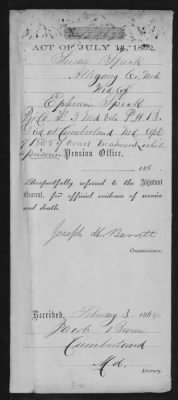 ACT OF JULY 14, 1862.
Susan Speck
Allegany Co. Md
Wid. of
Ephraim Speck
Co. H. 3 Md Vols P H B.
Died at Cumberland Md Apl
9 1865 of cruel treatment while
prisoner Pension Office,
186
Respectfully referred to the Adjutant
General, for official evidence of service
and death.
Joseph H. Barrett
Commissioner.
Received, February 3 1866
Jacob Brown
Cumberland
Md.
Attorney.